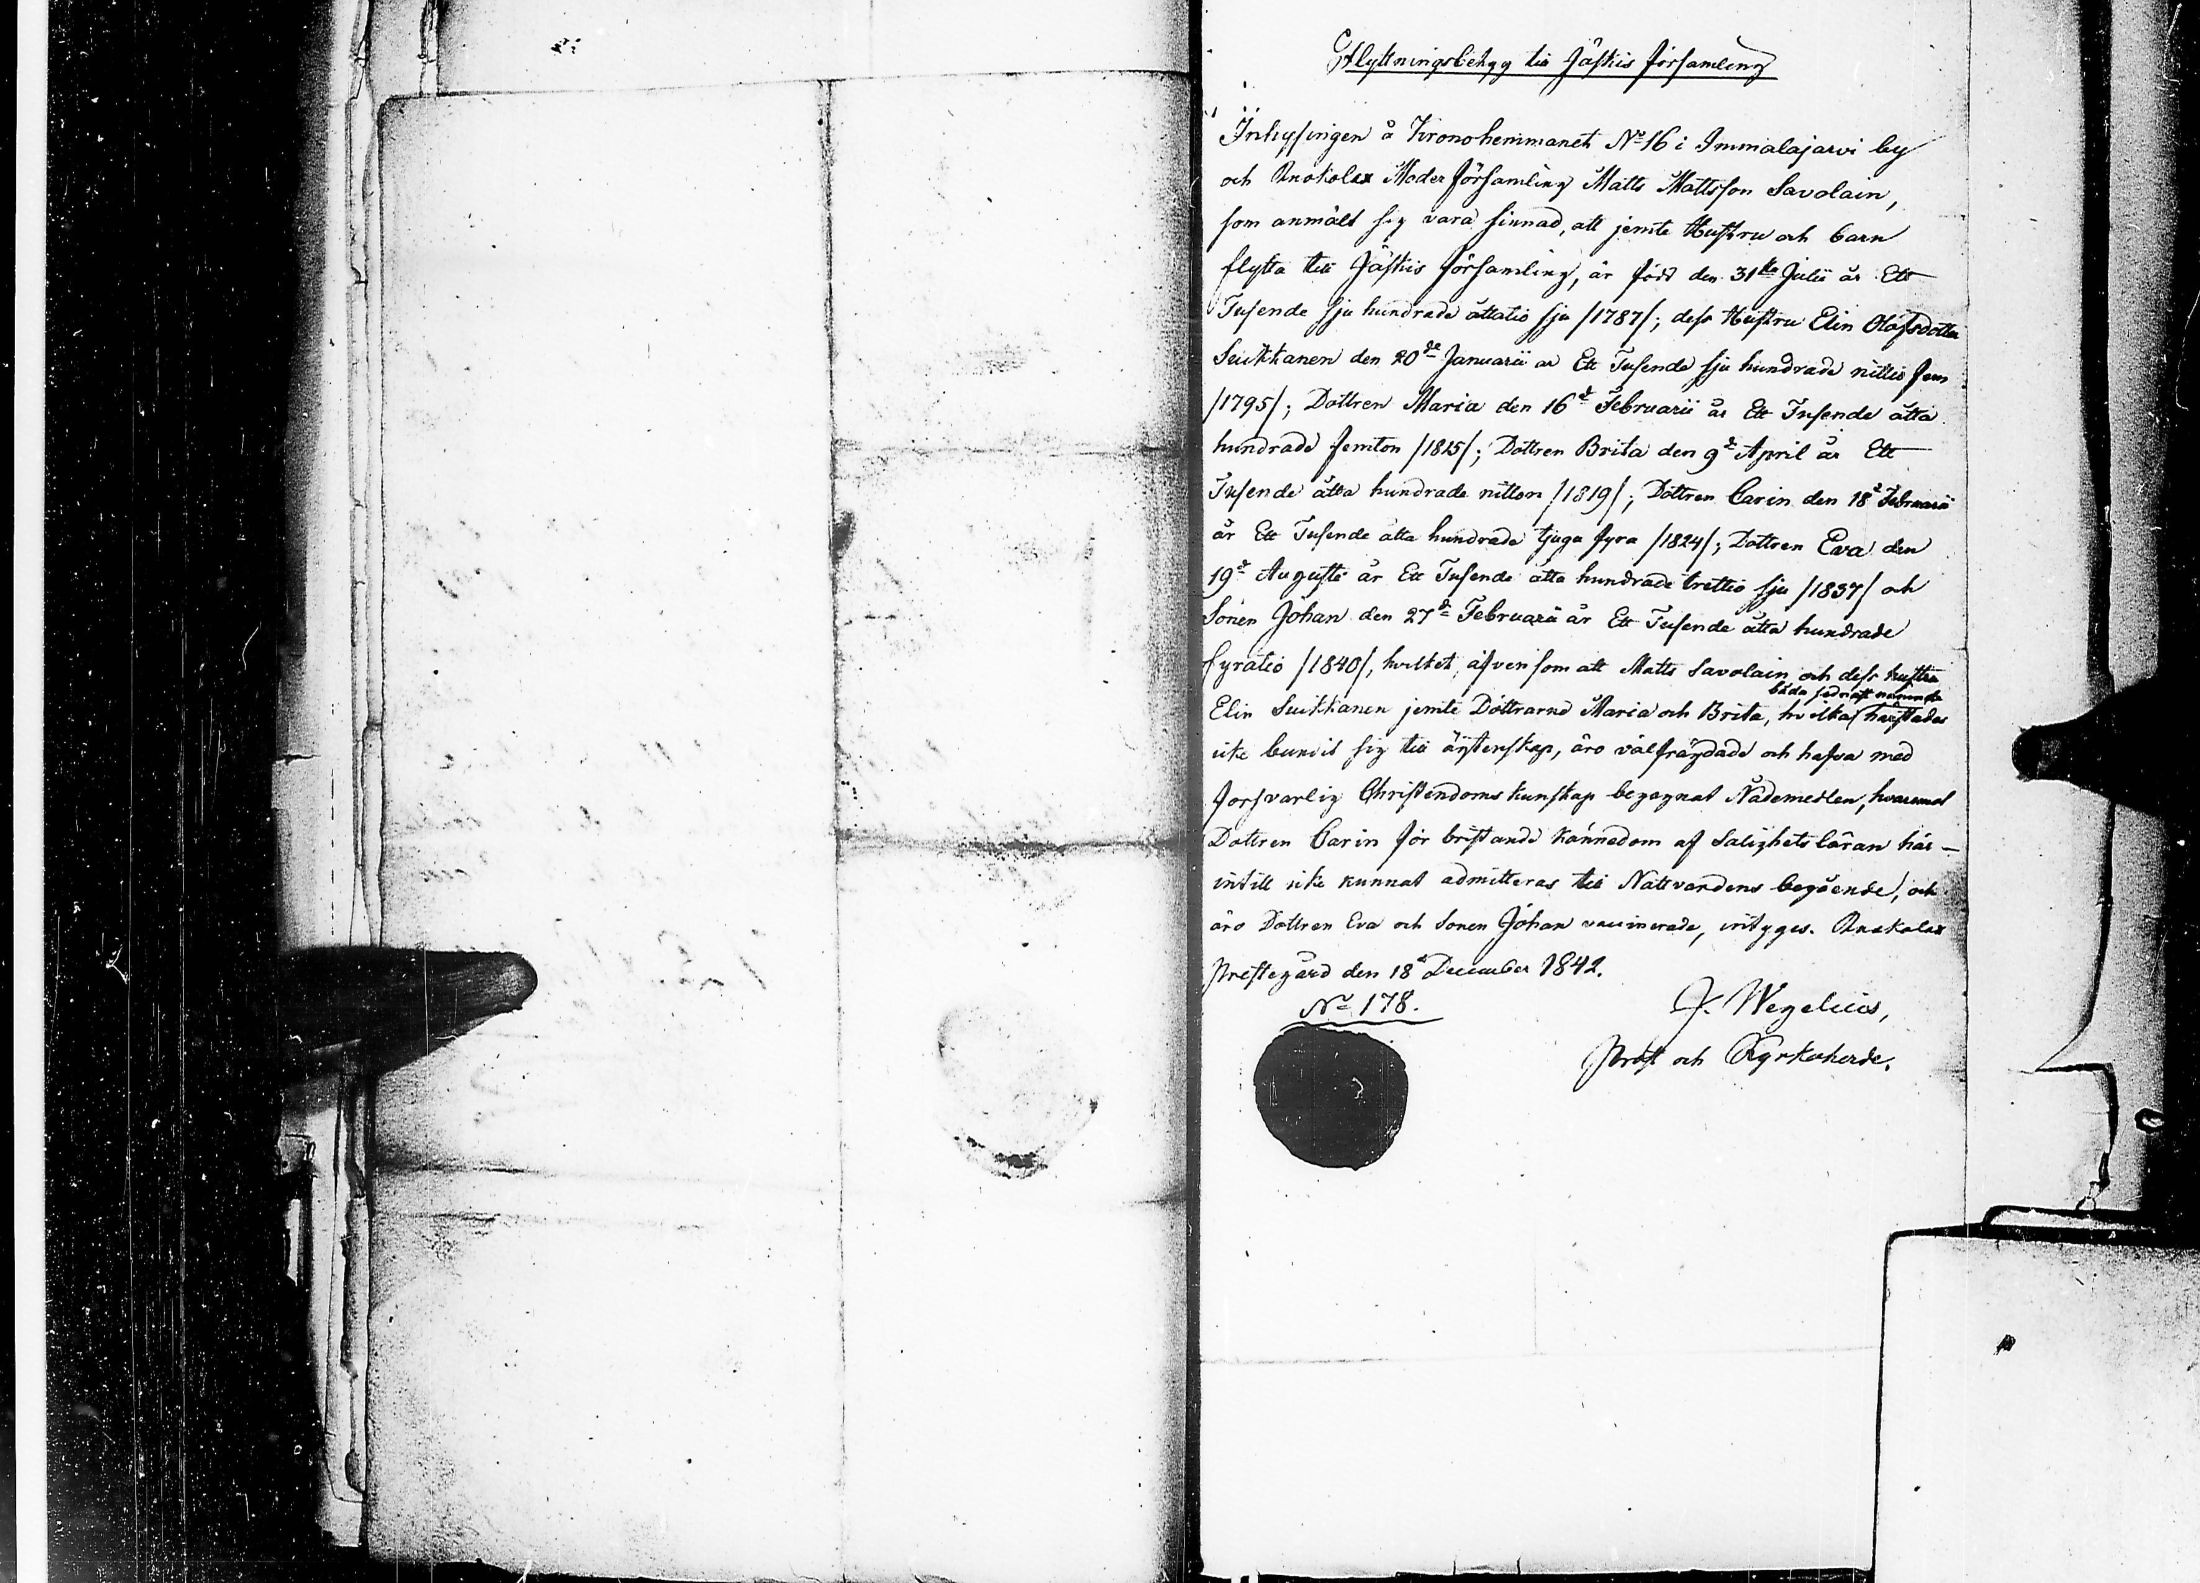 Utflyttningsbetyg till Jäskis församling
Inhysingen å Kronohemmanet No 16 i Immalajarvi by
och Ruokolax Moder församling Matts Mattsson Savolain,
som anmält sig vara sinnad, att jemte Hustru och barn
flytta till Jäskis församling, är född den 31sta Julii år Ett
Tusende sju hundrade åttatio sju /1787/; dess Hustru Elin Olofsdotter
Suikkanen den 20de Januarii år Ett Tusende sju hundrade nittio fem
/1795/; Dottren Maria den 16de Februarii år Ett Tusende åtta
hundrade femton /1815/; Dottren Brita den 9de April år Ett
Tusende åtta hundrade nitton /1819/; Dottren Carin den 18de Februarii
år Ett Tusende åtta hundrade tjugu fyra /1824/; Dottren Eva den
19de Augusti år Ett Tusende åtta hundrade trettio sju /1837/ och
Sonen Johan den 27de Februarii år Ett Tusende åtta hundrade
fyratio /1840/, hvilket, äfvensom att Matts Savolain och dess hustru
båda sednast nämnde
Elin Suikkanen jemte Döttrarne Maria och Brita, hvilka härstädes
icke bundit sig till äktenskap, äro välfrägdade och hafva med
försvarlig Christendoms kunskap begagnat Nådemedlen, hvaremot
Dottren Carin för bristande kännedom af Salighetsläran här-
intill icke kunnat admitteras till Nattvardens begående, och
äro Dottren Eva och Sonen Johan vaccinerade, intygas. Ruokolax
Prestegård den 18de December 1842.
No 178.
J. Wegelius,
Prost och Kyrkoherde.